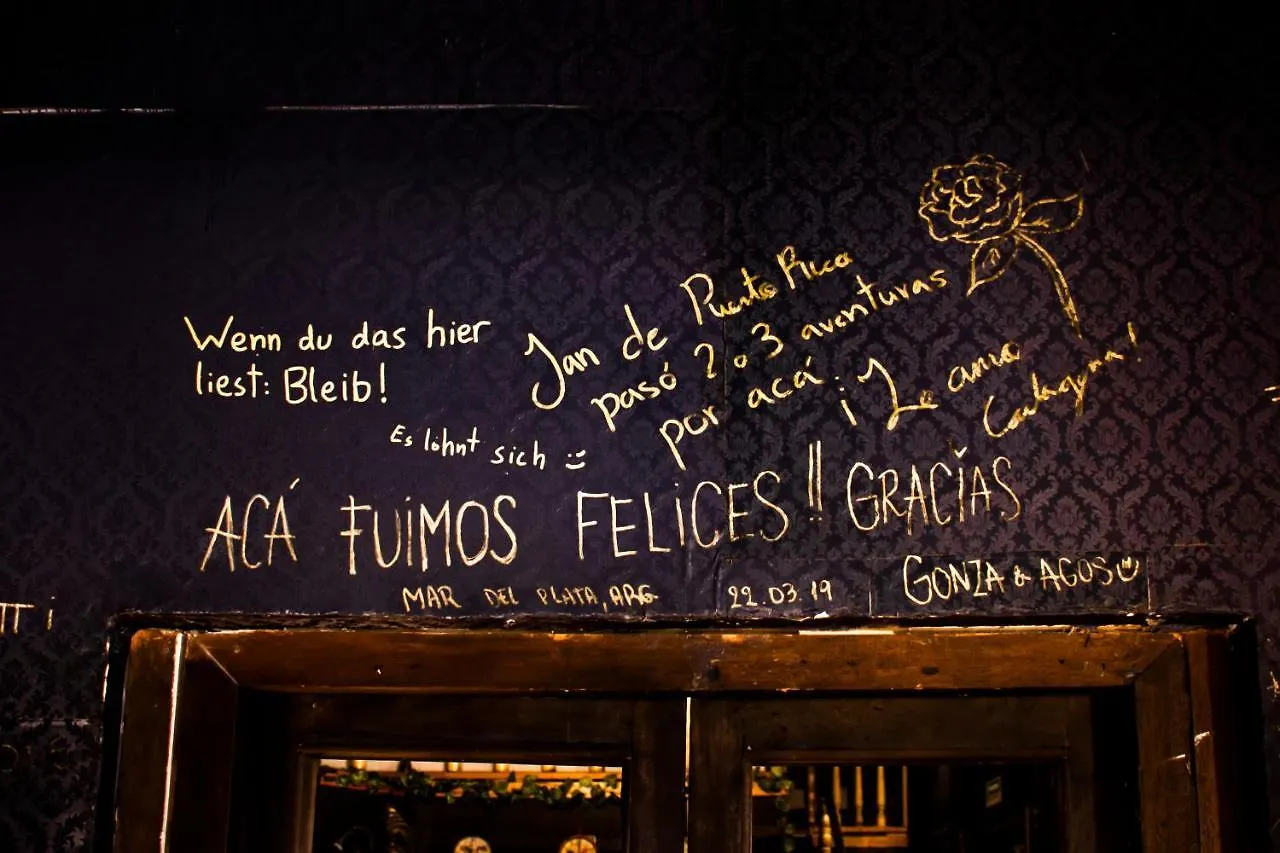 Wenn du das hier
liest: Bleib!
Es lohnt sich :)
Jan de Puerto Rico
pasó 2 o 3 aventuras
por acá. ¡ Le amo
Cartagena!
ACÁ FUIMOS FELICES!! GRACIAS
MAR DEL PLATA, ARG. 22.03.19 GONZA & AGOS